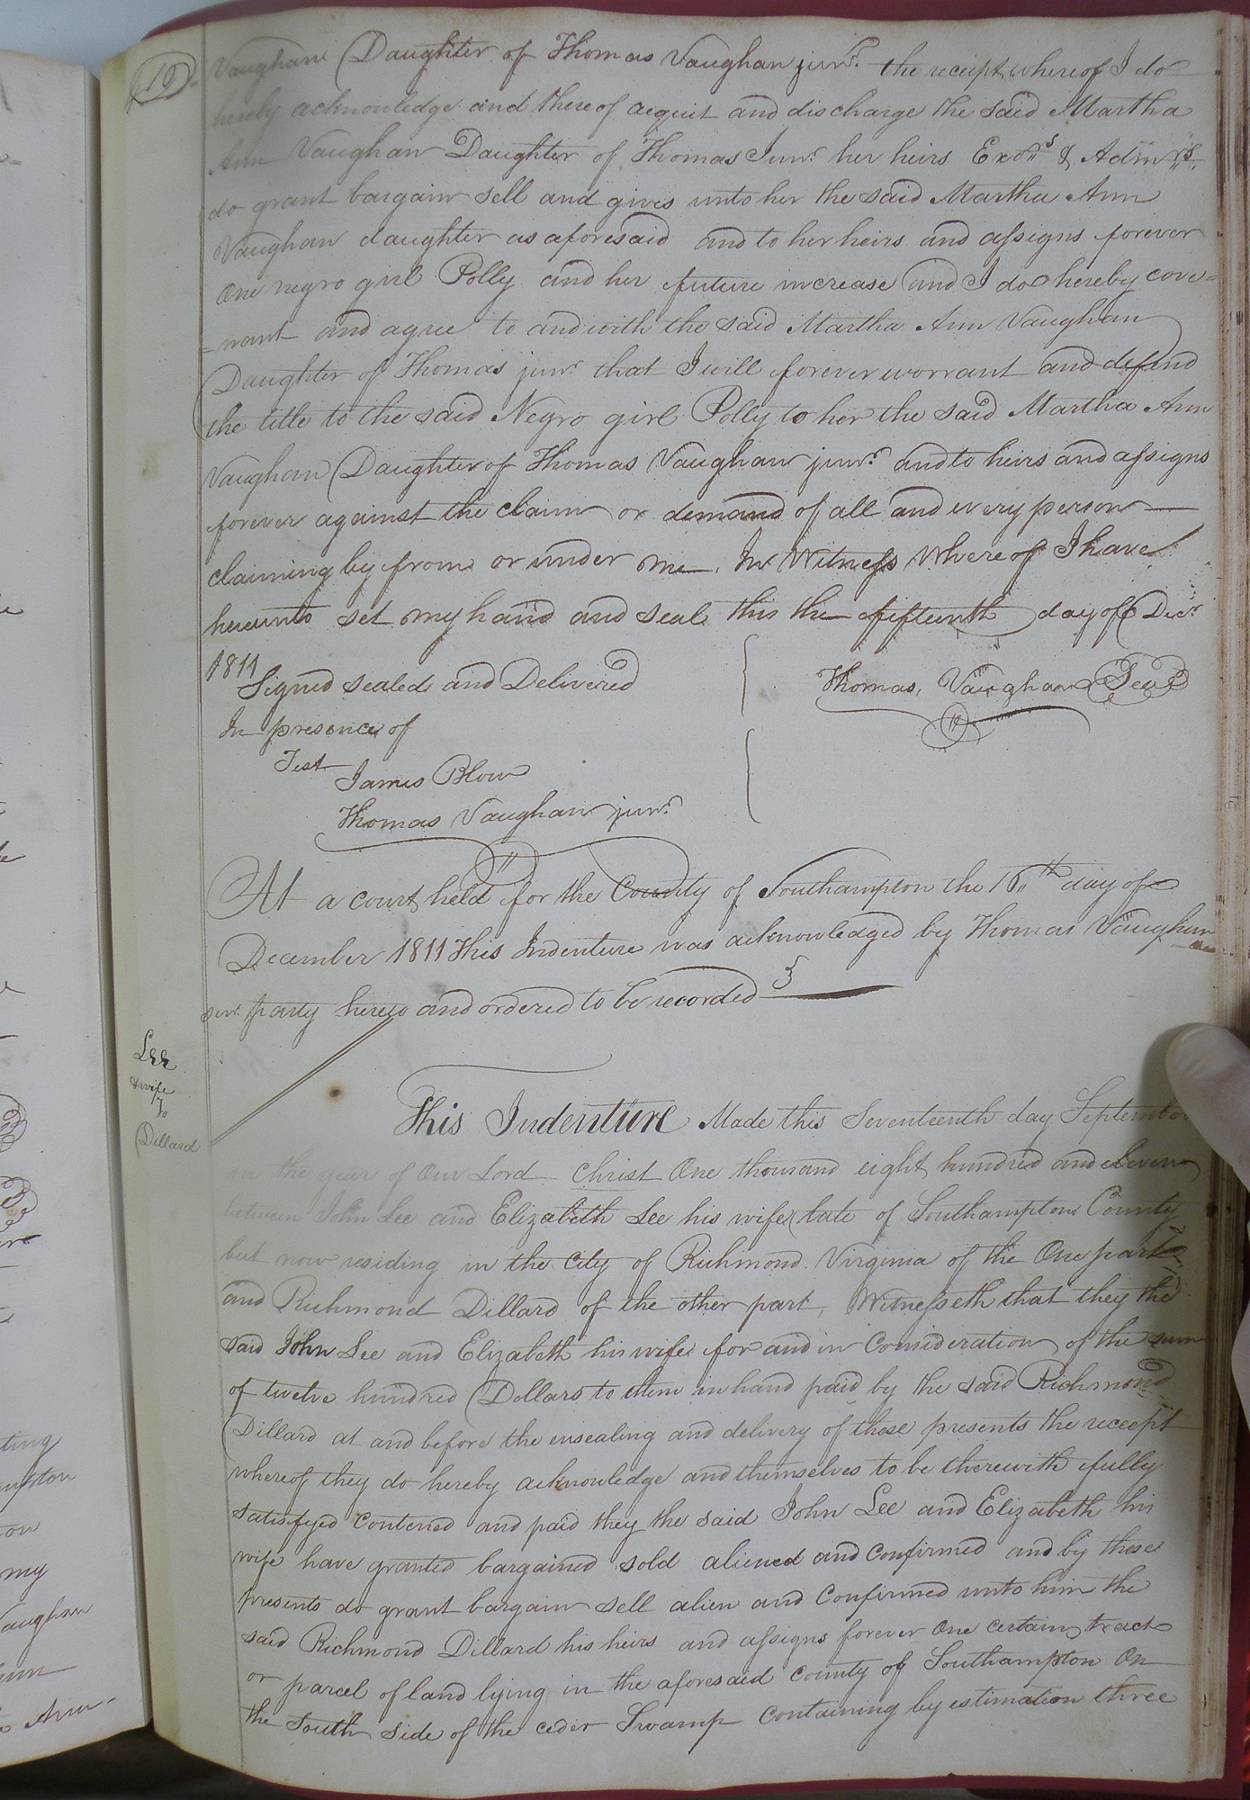 10
Vaughan Daughter of Thomas Vaughan junr. the receipt whereof I do
hereby acknowledge and thereof acquit and discharge the said Martha
Ann Vaughan Daughter of Thomas Junr. her heirs Exors & Admrs.
do grant bargain sell and give unto her the said Martha Ann
Vaughan daughter as aforesaid and to her heirs and assigns forever
One negro girl Polly and her future increase and I do hereby cove=
=nant and agree to and with the said Martha Ann Vaughan
Daughter of Thomas junr. that I will forever warrant and defend
the title to the said Negro girl Polly to her the said Martha Ann
Vaughan Daughter of Thomas Vaughan junr. and to heirs and assigns
forever against the claim or demand of all and every person
claiming by from or under me. In Witness Whereof I have
hereunto set my hand and seal this the fifteenth day of Decr.
1811
Signed sealed and Delivered
Thomas Vaughan Seal
In presence of
Test
James Blow
Thomas Vaughan junr.
At a court held for the County of Southampton the 16th day of
December 1811 This Indenture was acknowledged by Thomas Vaughan
senr. party hereto and ordered to be recorded
Lee
& wife
To
Dillard
This Indenture Made this Seventeenth day September
in the year of Our Lord Christ One thousand eight hundred and eleven
between John Lee and Elizabeth Lee his wife late of Southampton County
but now residing in the City of Richmond Virginia of the One part
and Richmond Dillard of the other part, Witnesseth that they the
said John Lee and Elizabeth his wife for and in Consideration of the sum
of twelve hundred Dollars to them in hand paid by the said Richmond
Dillard at and before the ensealing and delivery of these presents the receipt
whereof they do hereby acknowledge and themselves to be therewith fully
satisfyed Contened and paid they the said John Lee and Elizabeth his
wife have granted bargained sold aliened and Confirmed and by these
presents do grant bargain sell alien and Confirmed unto him the
said Richmond Dillard his heirs and assigns forever One certain tract
or parcel of land lying in the aforesaid County of Southampton On
the South side of the ceder Swamp Containing by estimation three